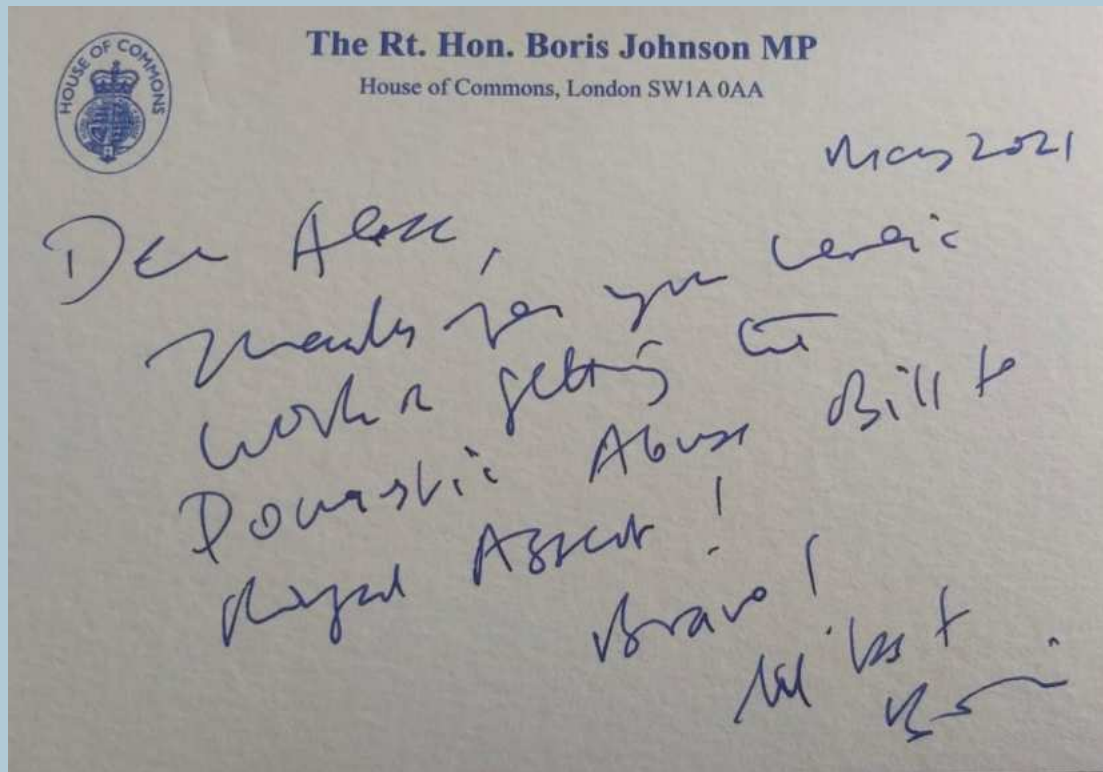 HOUSE OF COMMONS
The Rt. Hon. Boris Johnson MP
House of Commons, London SW1A 0AA
May 2021
Dear Alex,
Thanks for your heroic
work in getting the
Domestic Abuse Bill to
Royal Assent!
Bravo!
All best
Boris